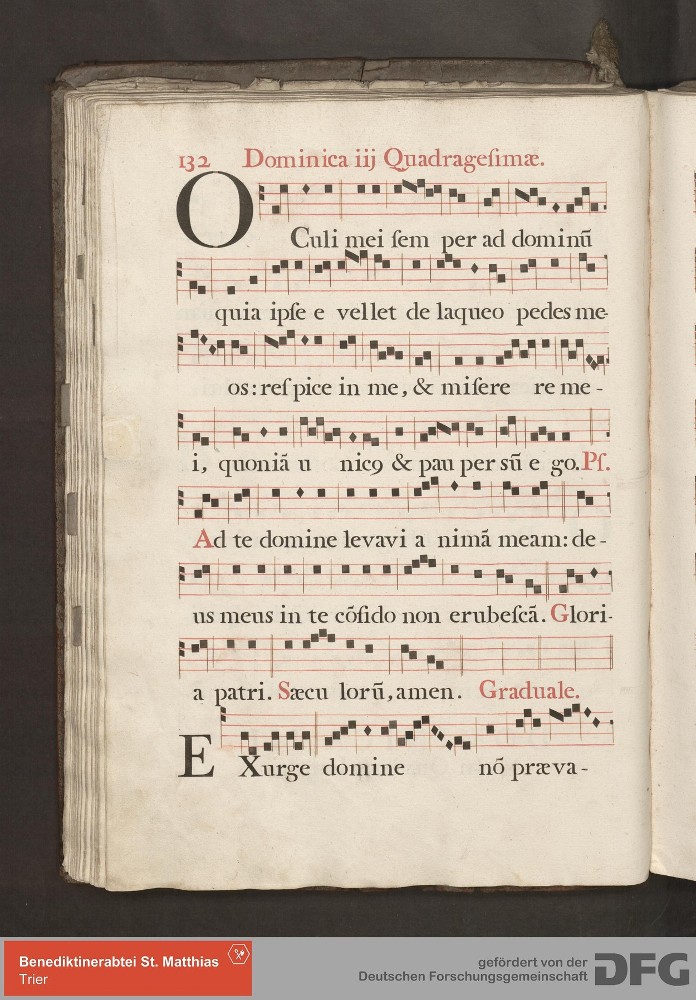 132 Dominica iij Quadrageſimæ.
OCuli mei ſem per ad dominū
quia ipſe e vellet de laqueo pedes me-
os: reſpice in me, & miſere re me-
i, quoniā u nic9 & pau per sū e go. Pſ.
Ad te domine levavi a nimā meam: de-
us meus in te cōfido non erubeſcā. Glori-
a patri. Sæcu lorū, amen. Graduale.
EXurge domine nō præva-
Benediktinerabtei St. Matthias
Trier
gefördert von der
Deutschen Forschungsgemeinschaft DFG